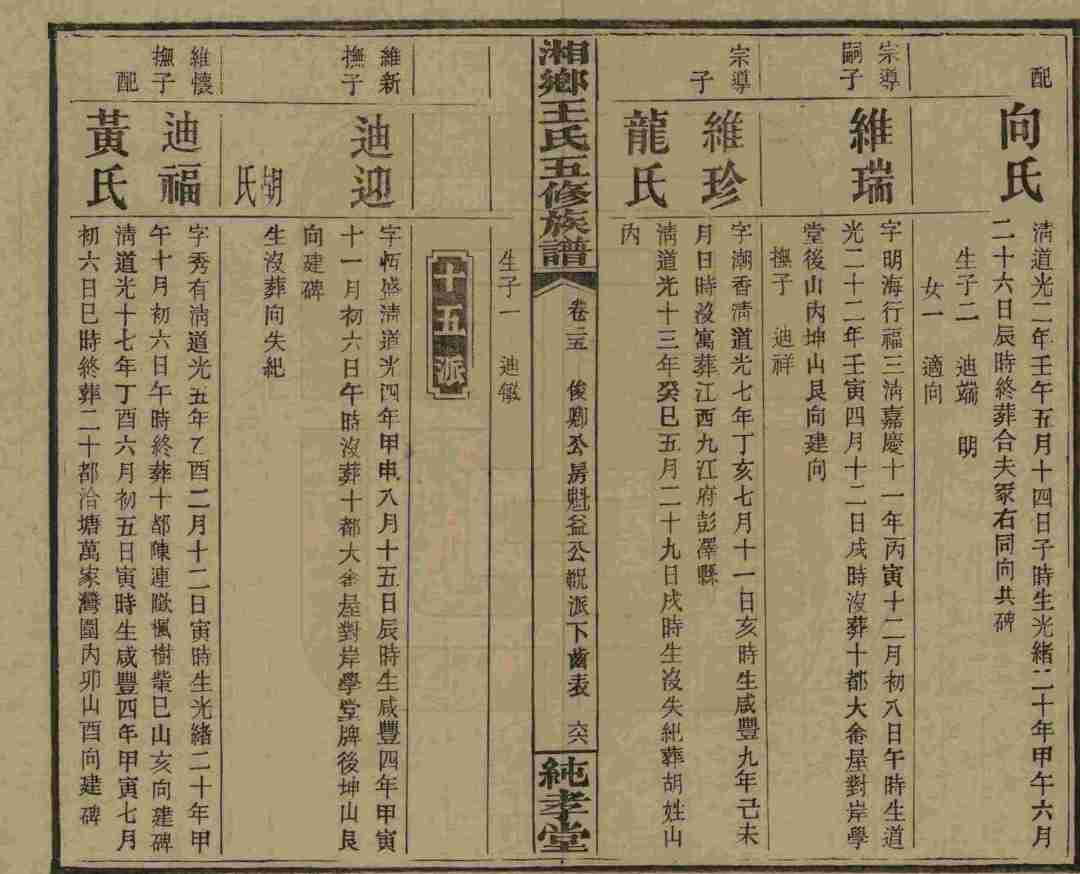 配
向氏
清道光二年壬午五月十四日子時生光緒二十年甲午六月
二十六日辰時終葬合夫冢右同向共碑
生子二 迪端 明
女一 適向
宗導
嗣子
維瑞
字明海行福三清嘉慶十一年丙寅十二月初八日午時生道
光二十二年壬寅四月十二日戌時沒葬十都大畬屋對岸學
堂後山內坤山艮向建向
撫子 迪祥
宗導
子
維珍
字潮香清道光七年丁亥七月十一日亥時生咸豐九年己未
月日時沒寓葬江西九江府彭澤縣
龍氏
清道光十三年癸巳五月二十九日戌時生沒失紀葬胡姓山
內
湘鄉王氏五修族譜
卷二五 俊卿公房魁益公祝派下齒表 六六
純孝堂
生子一 迪敏
十五派
維新
撫子
迪迎
字恆盛清道光四年甲申八月十五日辰時生咸豐四年甲寅
十一月初六日午時沒葬十都大畬屋對岸學堂牌後坤山艮
向建碑
胡氏
生沒葬向失紀
維懷
撫子
迪福
字秀有清道光五年乙酉二月十二日寅時生光緒二十年甲
午十月初六日午時終葬十都陳連墩楓樹柴巳山亥向建碑
配
黃氏
清道光十七年丁酉六月初五日寅時生咸豐四年甲寅七月
初六日巳時終葬二十都洽塘萬家灣園內卯山酉向建碑